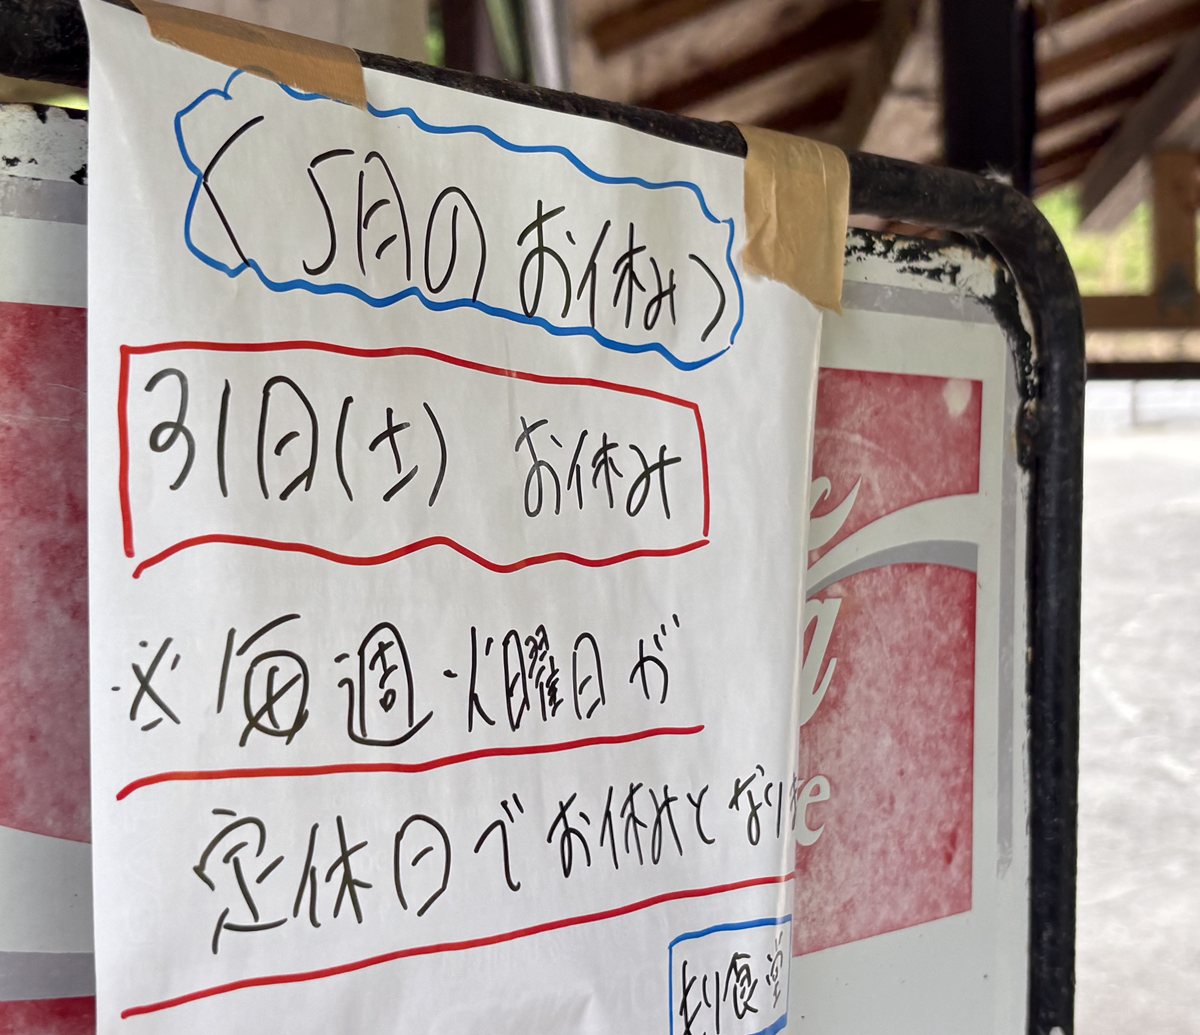 〈5月のお休み〉
31日(土) お休み
※毎週火曜日が
定休日でお休みとなり
食堂